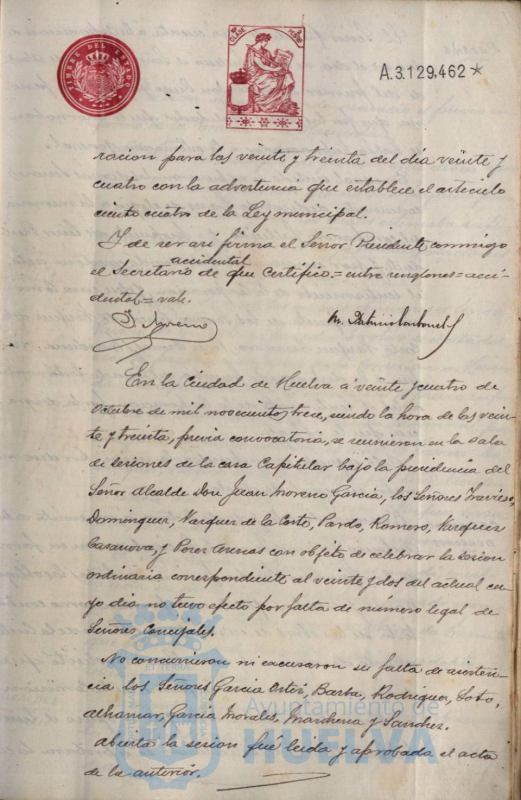 TIMBRE DEL ESTADO
CLASE
A.3.129,462*
racion para las veinte y treinta del día veinte y
cuatro con la advertencia que establece el articulo
ciento cuatro de la Ley municipal.
Y de ser así firma el Señor Presidente conmigo
accidental
el Secretario de que certifico.=entre renglones=acci-
dental=vale.
J. Moreno
En la Ciudad de Huelva á veinte y cuatro de
Octubre de mil novecientos trece, siendo la hora de las vein-
te y treinta, previa convocatoria, se reunieron en la sala
de sesiones de la casa Capitular bajo la presidencia del
Señor Alcalde Don Juan Moreno Garcia, los Señores Travieso,
Dominguez, Vazquez de la Corte, Pardo, Romero, Vazquez
Casanova, y Perez Arenas con objeto de celebrar la sesion
ordinaria correspondiente al veinte y dos del actual cu-
yo dia no tuvo efecto por falta de número legal de
Señores Concejales.
No concurrieron ni excusaron su falta de asisten-
cia los Señores Garcia Ortiz, Barba, Rodriguez, Soto,
Alhamar, Garcia Morales, Marchena y Sanchez.
Abierta la sesion fué leida y aprobada el acta
de la anterior.
Ayuntamiento de
HUELVA